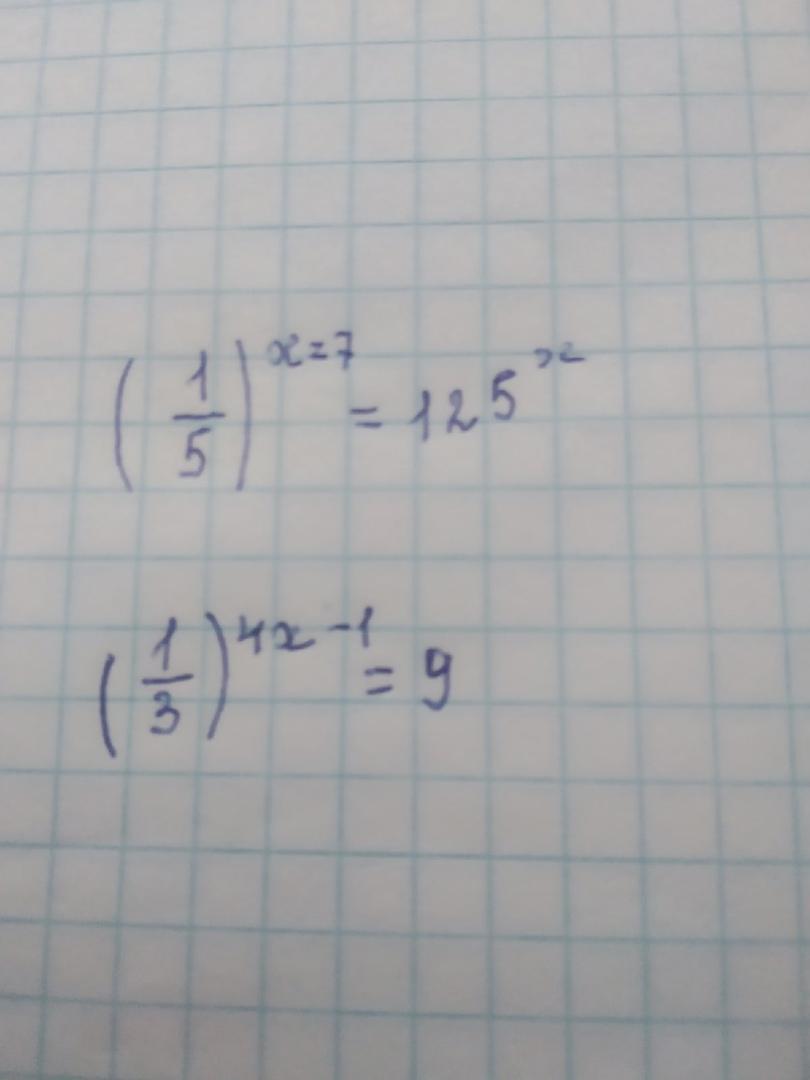 (1/5)^(x=7) = 125^x
(1/3)^(4x-1) = 9